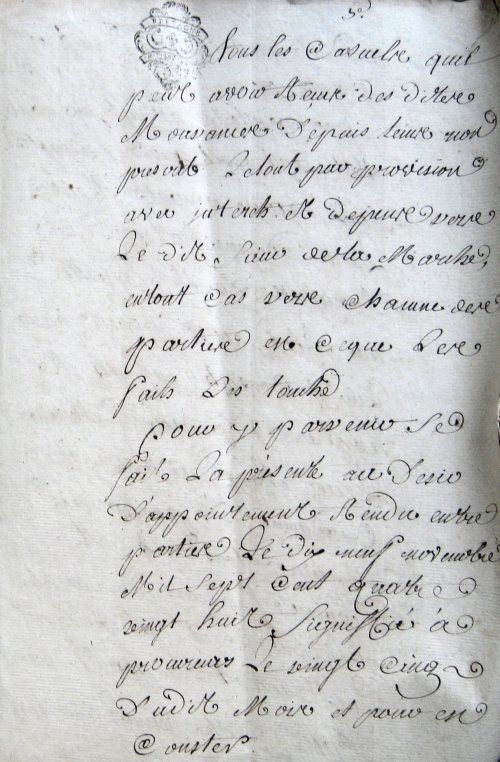 3e
tous les Casuelx quil
peut avoir Reçux des dites
Mouvances Depuis tems non
prescrit Le tout par provision
avec interets et depens vers
Le dit Sieur de la Marche,
en tout Cas vers Chacune des
parties en Ceque Les
faits Les touche
pour y parvenir Se
fait La presente au Desir
D'appointement Rendu entre
parties Le dix neuf novembre
Mil Sept Cent quatre
vingt huit Signiffié á
procureurs Le vingt Cinq
Dudit Mois et pour en
Conster.